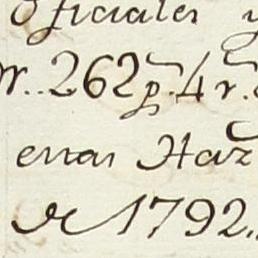 Oficiales y
262 p.s 4 r.
erras Haz
de 1792..